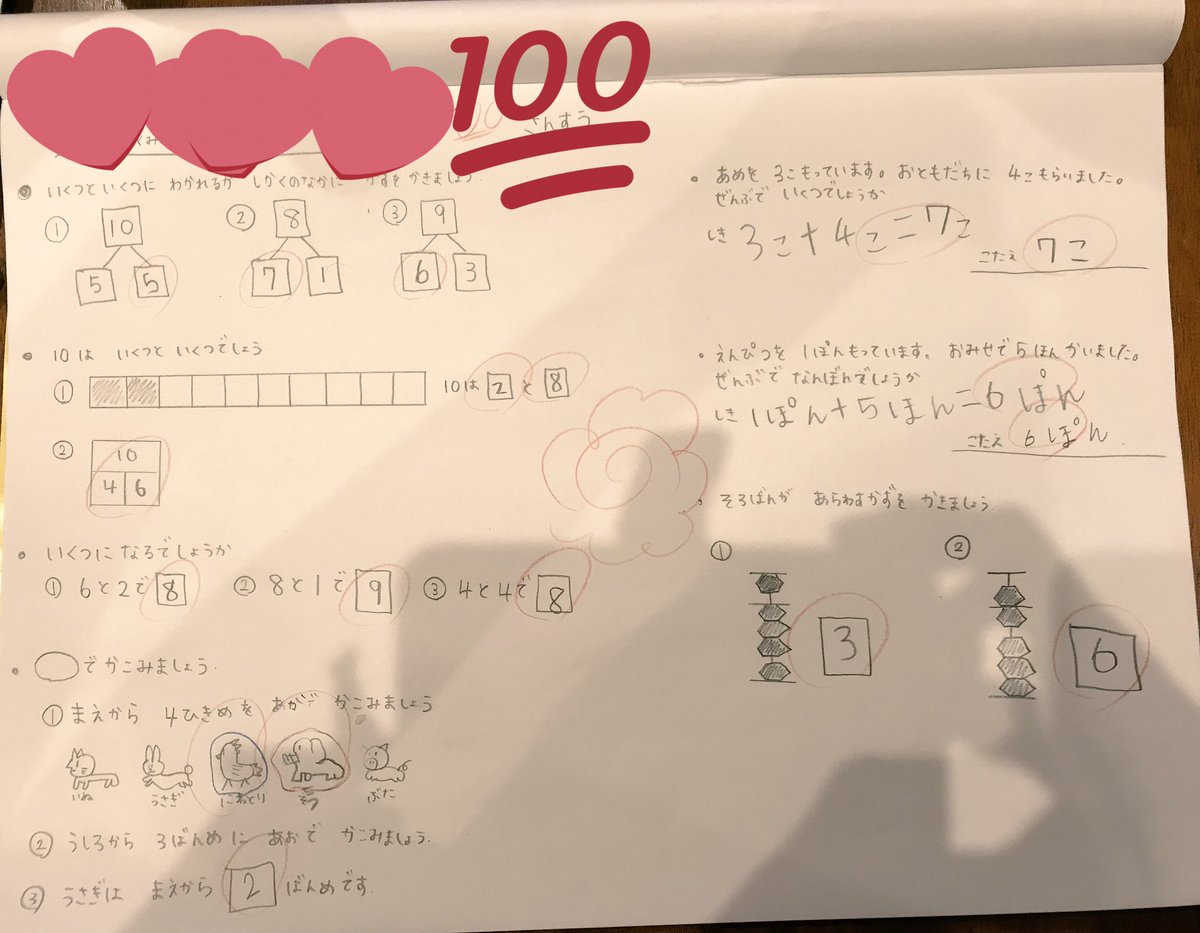 100
さんすう
いくつと いくつに わかれるか しかくのなかに かずを かきましょう
① ② ③
10 8 9
5 5 7 1 6 3
10は いくつと いくつでしょう
① 10は 2 と 8
② 10
4 6
いくつに なるでしょうか
① 6と2で 8 ② 8と1で 9 ③ 4と4で 8
でかこみましょう.
① まえから 4ひきめを あかで かこみましょう
いぬ うさぎ にわとり ぞう ぶた
② うしろから 3ばんめに あおで かこみましょう.
③ うさぎは まえから 2 ばんめです.
あめを 3こもっています。おともだちに 4こもらいました。
ぜんぶで いくつでしょうか
しき 3こ+4こ=7こ
こたえ 7こ
えんぴつを 1ぽんもっています。おみせで 5ほんかいました。
ぜんぶで なんぼんでしょうか
しき 1ぽん+5ほん=6ぽん
こたえ 6ぽん
そろばんが あらわすかずを かきましょう.
① ②
3 6